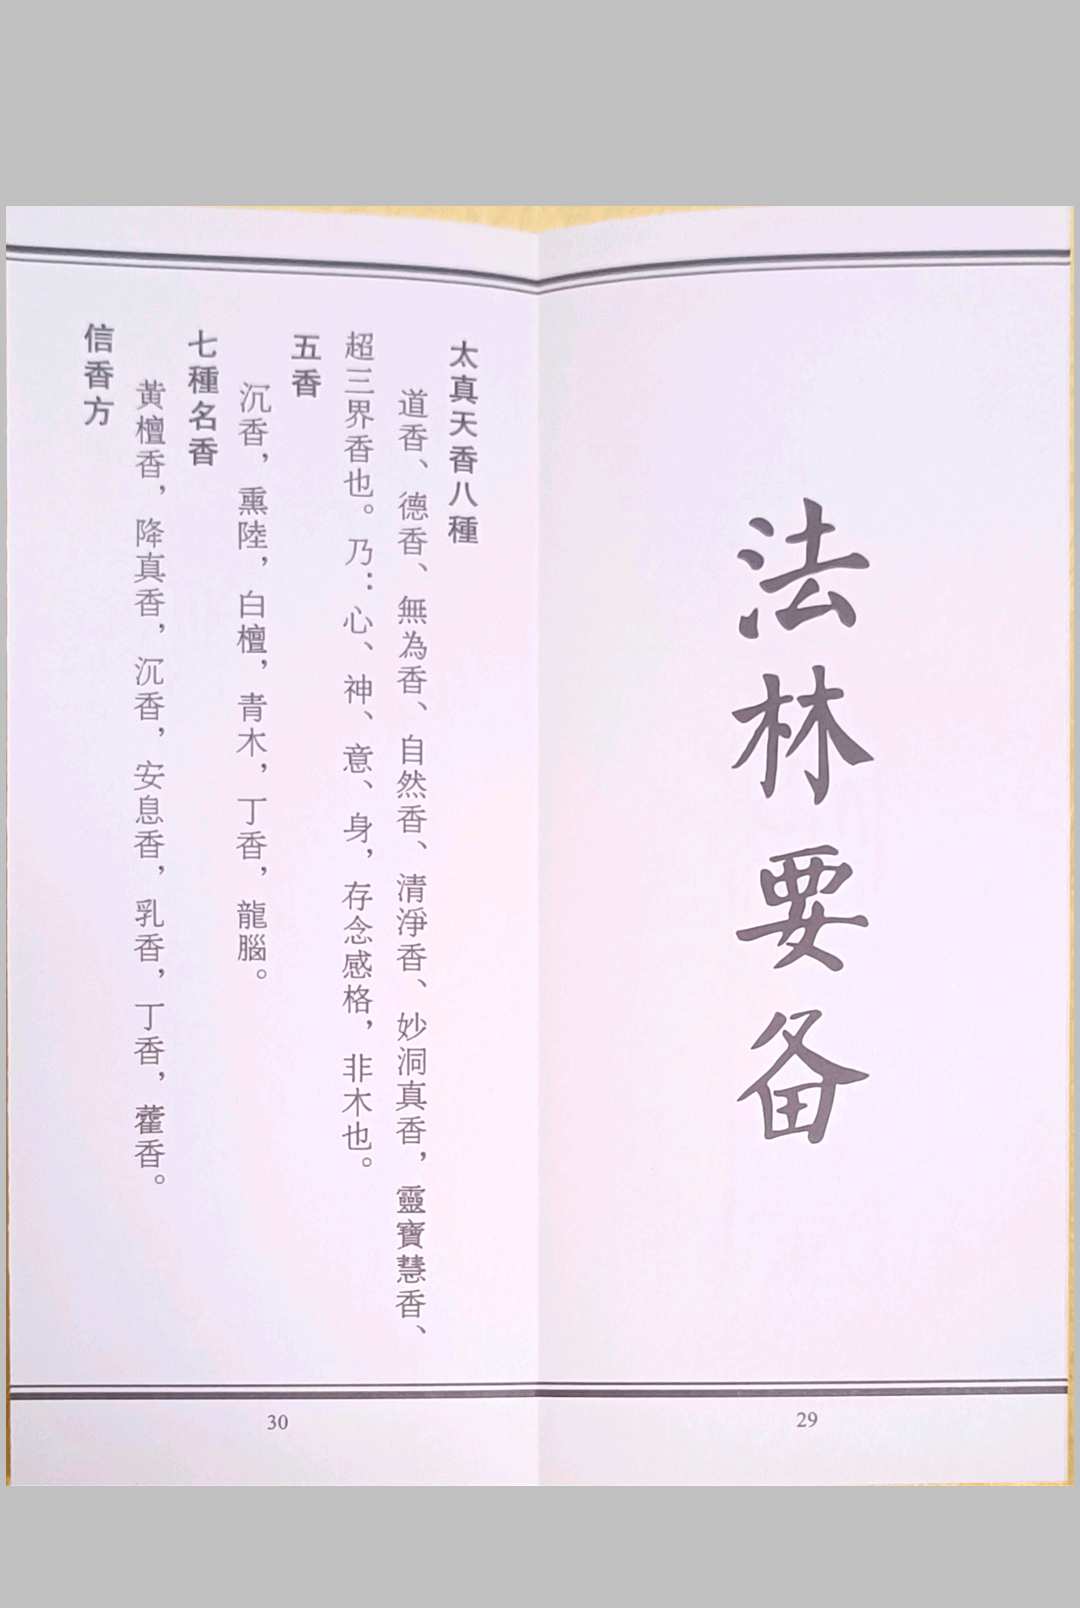 法林要备
29
太真天香八種
道香、德香、無為香、自然香、清淨香、妙洞真香，靈寶慧香、
超三界香也。乃：心、神、意、身，存念感格，非木也。
五香
沉香，熏陸，白檀，青木，丁香，龍腦。
七種名香
黃檀香，降真香，沉香，安息香，乳香，丁香，藿香。
信香方
30